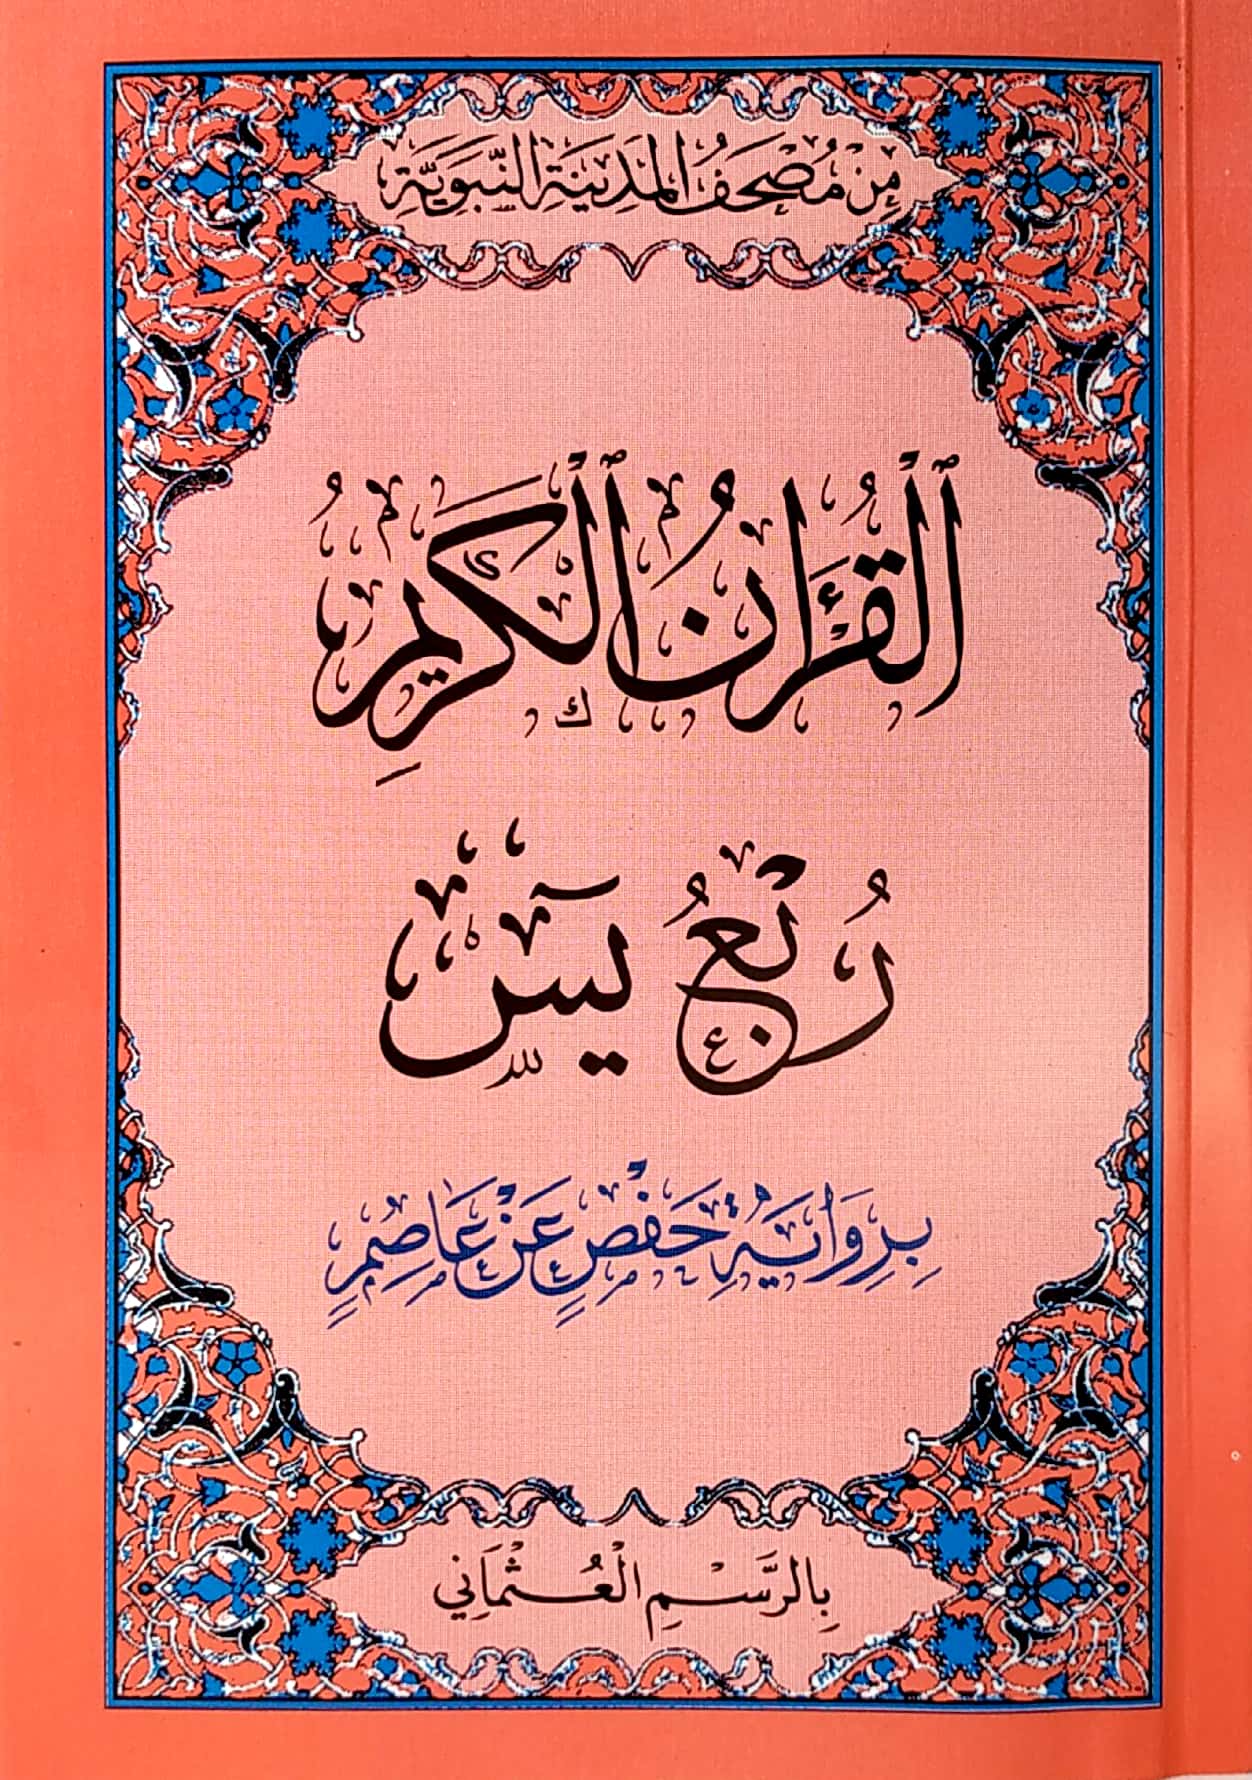 مِنْ مُصْحَفُ الْمَدِينَةِ النَّبَوِيَّةِ
ٱلْقُرْءَانُ ٱلْكَرِيمُ
رُبْعُ يسٓ
بِرِوَايَةِ حَفْصٍ عَنْ عَاصِمٍ
بِالرَّسْمِ الْعُثْمَانِي